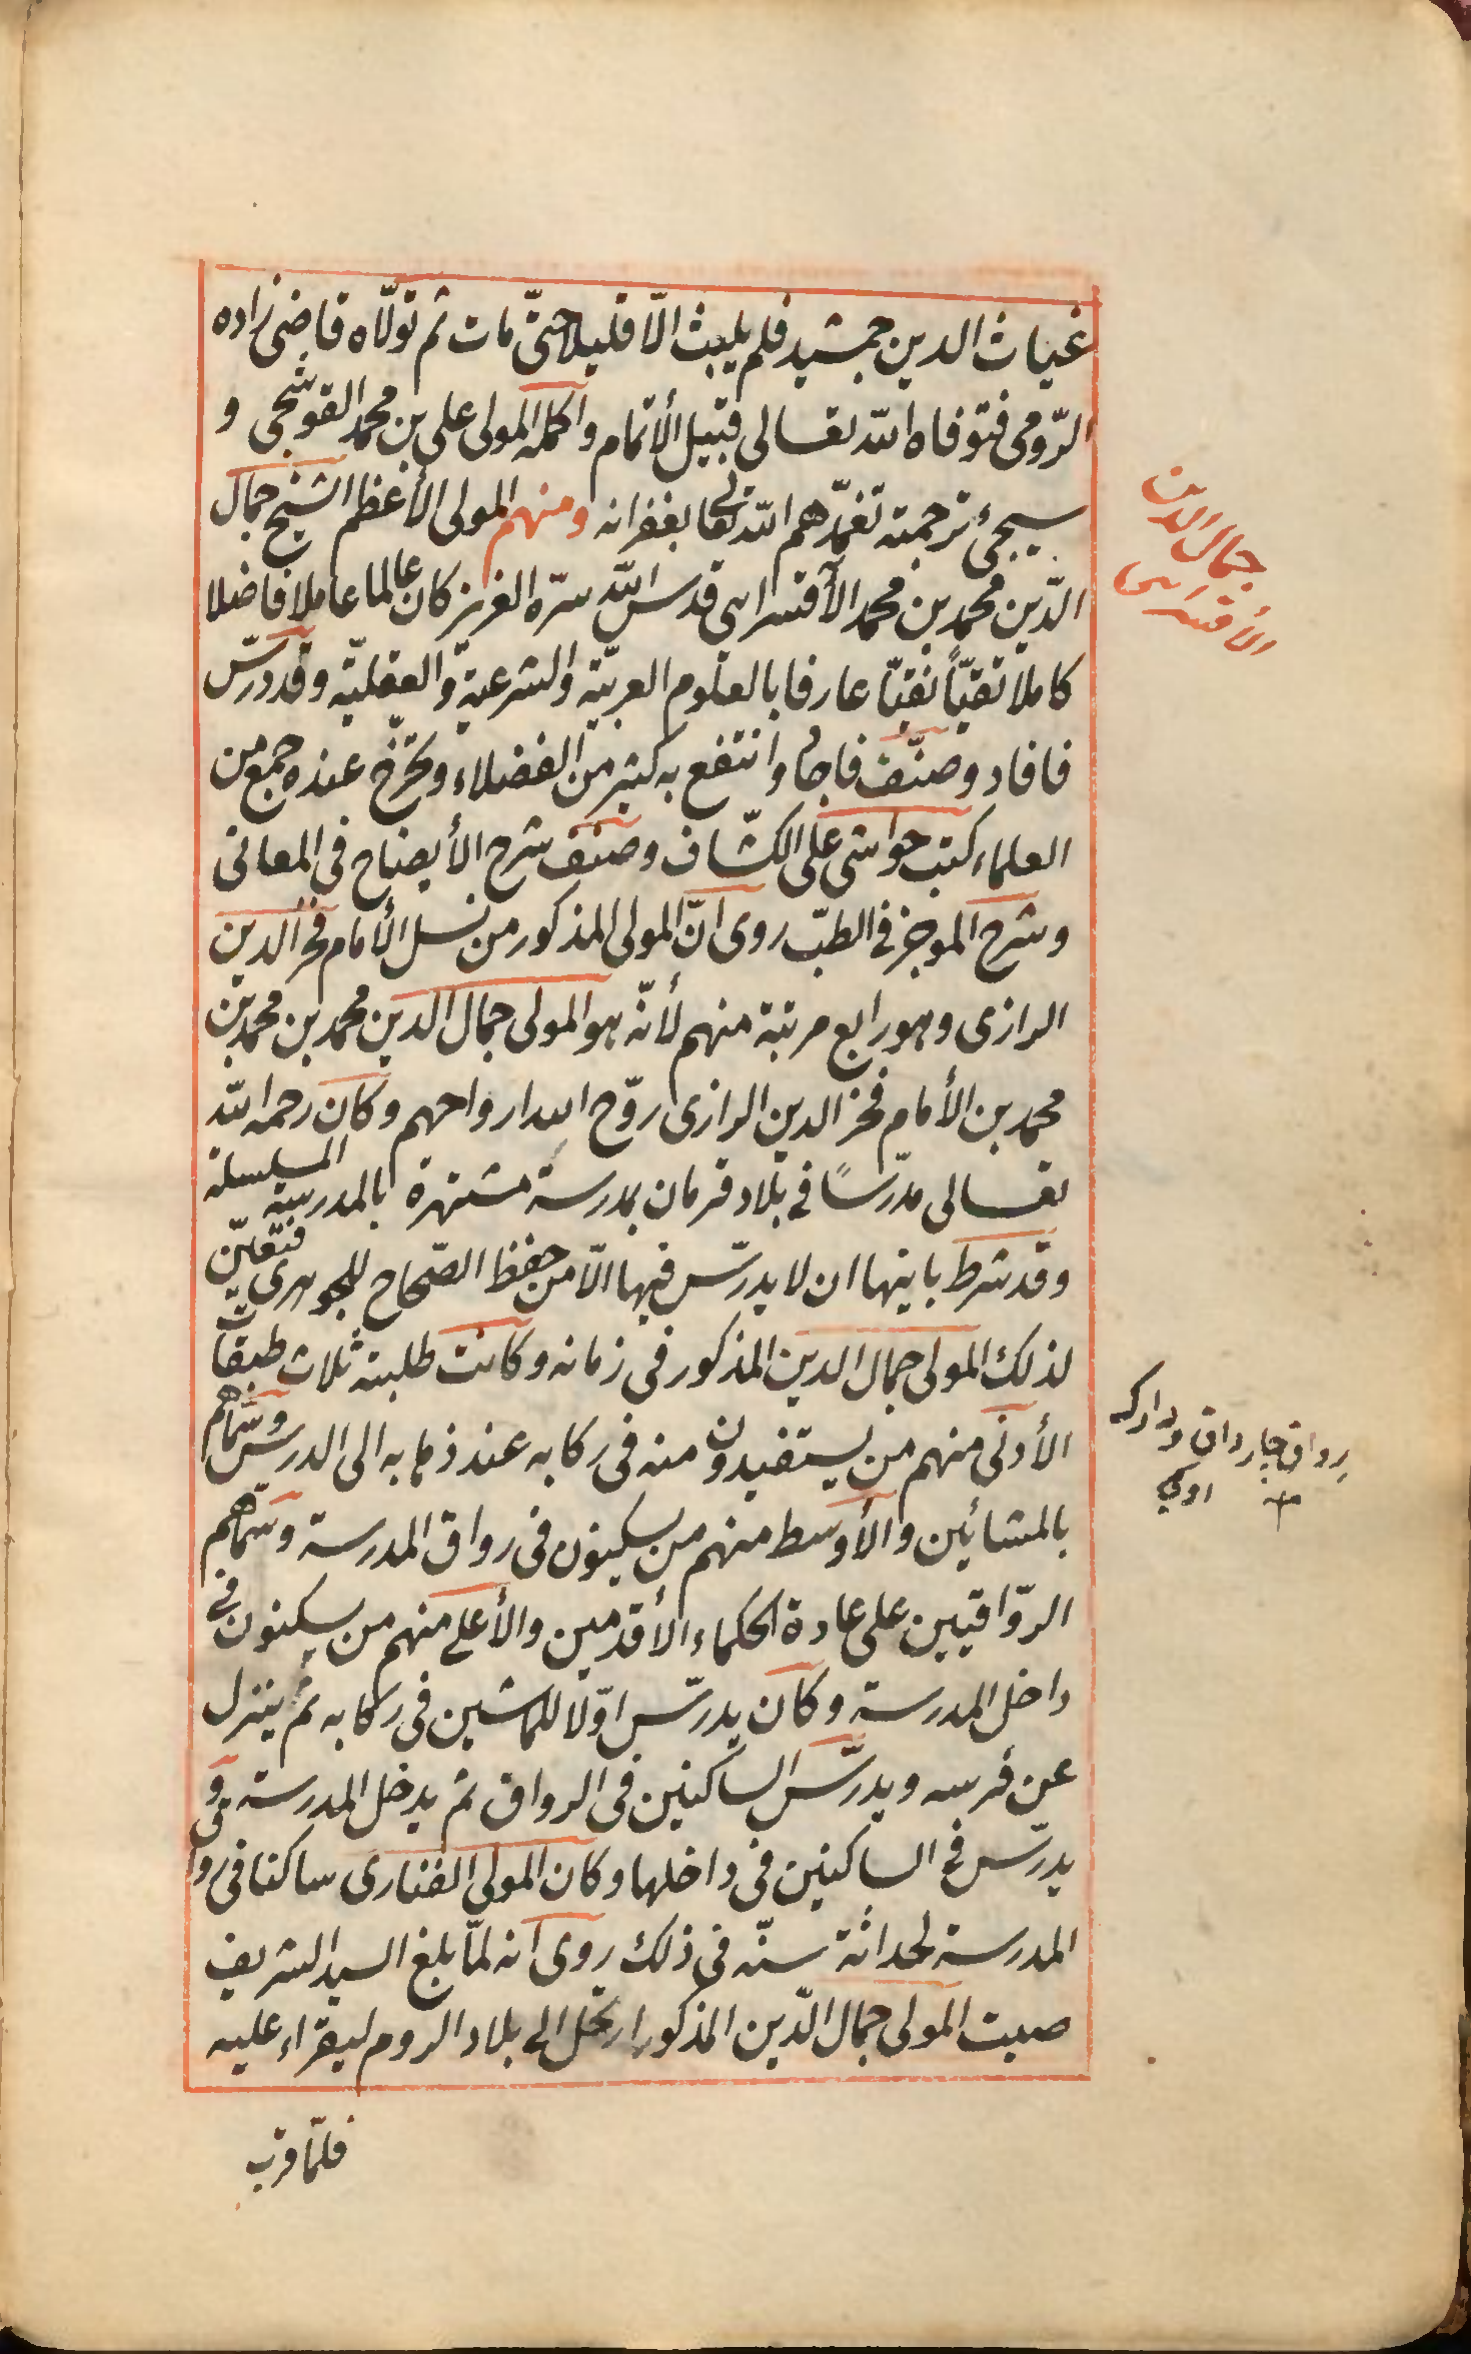 غياث الدين جمشيد فلم يلبث الّا قليلا حتّى مات ثم تولّاه قاضى زاده
الرّومى فتوفاه الله تعالى قبيل الأتمام واكمله المولى على بن محمد القوشجى و
سيجئ ترجمته تغمّدهم الله تعالى بغفرانه ومنهم المولى الأعظم الشيخ جمال
الدّين محمد بن محمد الآقسرايى قدس الله سرّه العزيز كان عالما عاملا فاضلا
كاملا تقيّاً نقيّا عارفا بالعلوم العربيّة والشرعية والعقليّة وقد درّس
فافاد وصنّف فاجاد وانتفع به كثير من الفضلاء وتخرّج عنده جمع من
العلماء كتب حواشى على الكشّاف وصنف شرح الأيضاح فى المعانى
وشرح الموجز فى الطبّ روى انّ المولى المذكور من نسل الأمام فخر الدين
الرازى وهو رابع مرتبة منهم لأنّه هو المولى جمال الدين محمد بن محمد بن
محمد بن الأمام فخر الدين الرازى روّح الله ارواحهم وكان رحمه الله
تعالى مدرّسًا فى بلاد قرمان بمدرسة مشتهرة بالمدرسة المسلسلة
وقد شرط بانيها ان لا يدرّس فيها الّا من حفظ الصّحاح للجوهرى فتعيّن
لذلك المولى جمال الدين المذكور فى زمانه وكانت طلبته ثلاث طبقات
الأدنى منهم من يستفيدون منه فى ركابه عند ذهابه الى الدرس وسّماهم
بالمشائين والأوسط منهم من يسكنون فى رواق المدرسة وسمّاهم
الرّواقيين على عادة الحكماء الأقدمين والأعلى منهم من يسكنون فى
داخل المدرسة وكان يدرّس اوّلا للماشين فى ركابه ثم ينزل
عن فرسه ويدرّس الساكنين فى الرواق ثم يدخل المدرسة و
يدرّس فى الساكنين فى داخلها وكان المولى الفنارى ساكنا فى رواق
المدرسة لحداثة سنّه فى ذلك روى انه لمّا بلغ السيد الشريف
صيت المولى جمال الدّين المذكور ارتحل الى بلاد الروم ليقراء عليه
فلمّا قرب
جمال الدين
الأقسرايى
رواق چارداق